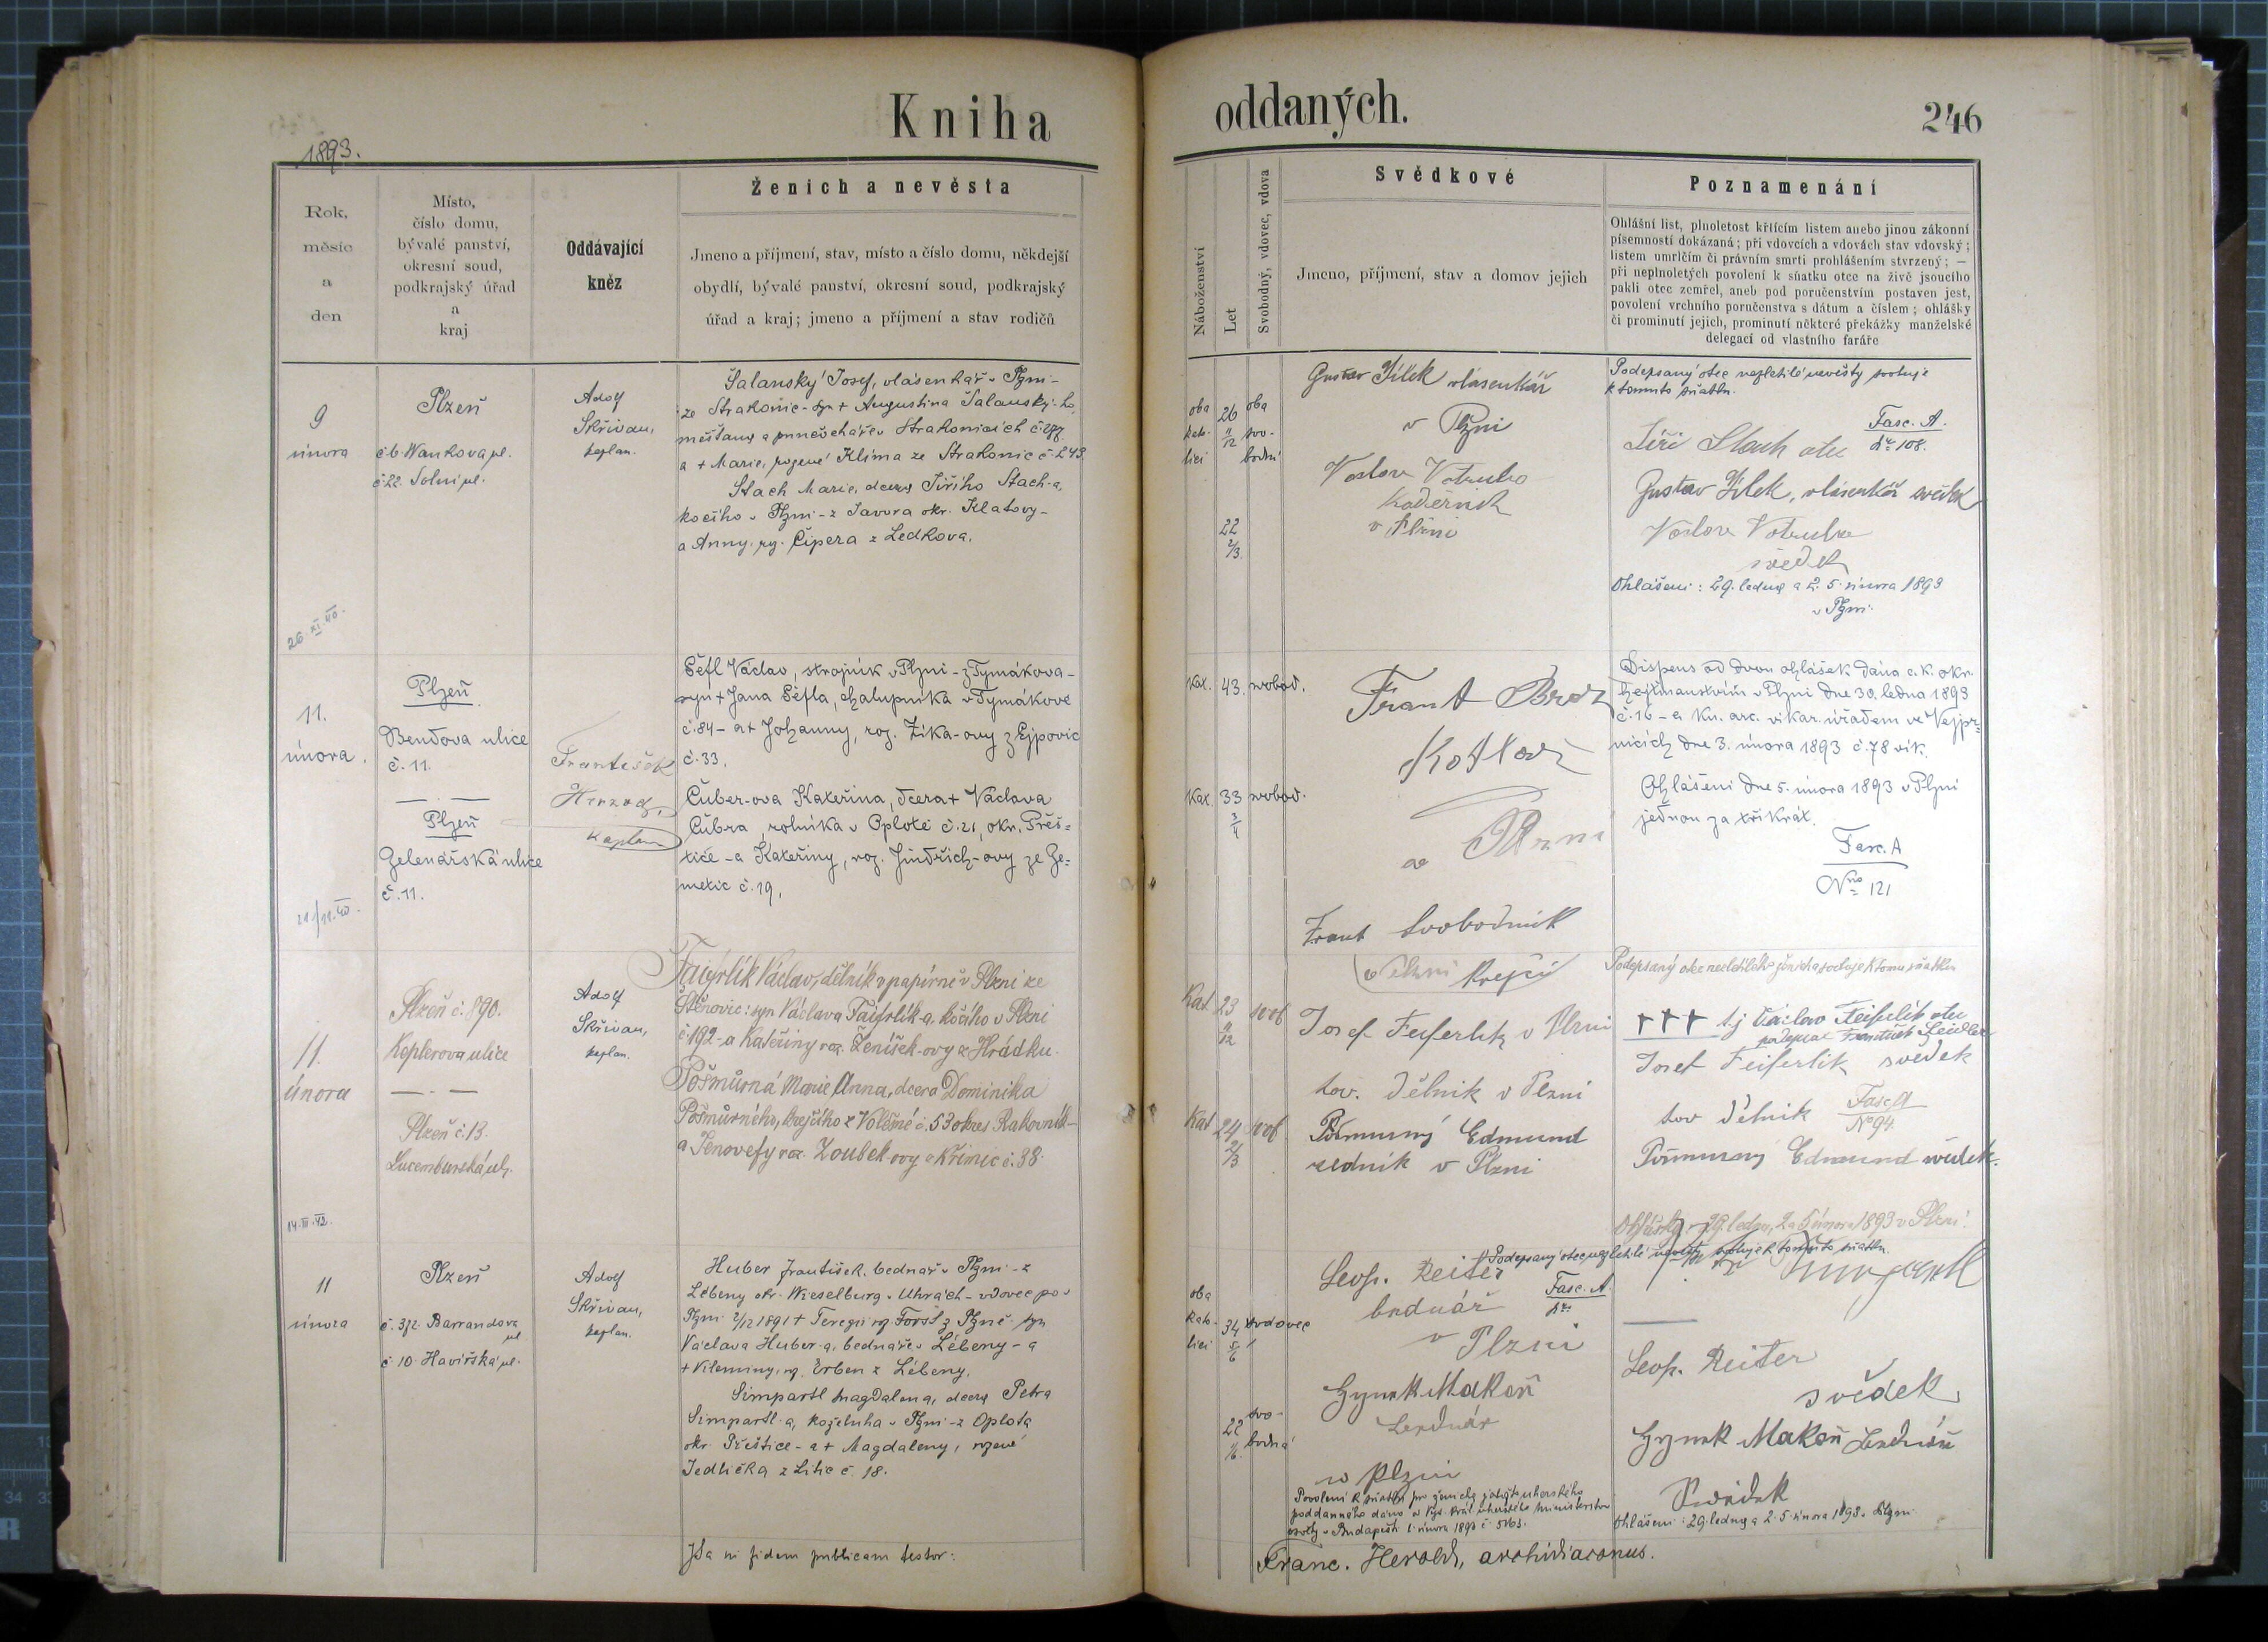 Kniha
oddaných.
246
1893.
Rok,
měsíc
a
den
Místo,
číslo domu,
bývalé panství,
okresní soud,
podkrajský úřad
a
kraj
Oddávající
kněz
Ženich a nevěsta
Jmeno a příjmení, stav, místo a číslo domu, někdejší
obydlí, bývalé panství, okresní soud, podkrajský
úřad a kraj; jmeno a příjmení a stav rodičů
Náboženství
Let
Svobodný, vdovec, vdova
Svědkové
Jmeno, příjmení, stav a domov jejich
Poznamenání
Ohlášní list, plnoletost křticím listem anebo jinou zákonní
písemností dokázaná; při vdovcích a vdovách stav vdovský;
listem umrlčím či právním smrti prohlášením stvrzený; —
při neplnoletých povolení k sňatku otce na živě jsoucího
pakli otec zemřel, aneb pod poručenstvím postaven jest,
povolení vrchního poručenstva s dátum a číslem; ohlášky
či prominutí jejich, prominutí některé překážky manželské
delegací od vlastního faráře
9
února
Plzeň
č. 6. Wankova ul.
č. 22. Solní ul.
Adolf
Skřivan,
kaplan.
Šalanský Josef, vlásenkář v Plzni -
ze Strakonic - syn + Augustina Šalanský-ho,
měšťana a punčocháře v Strakonicích
a + Marie, rozené Klíma ze Strakonic č. 243
Stach Marie, dcera Jiřího Stach-a,
kočího v Plzni - z Javora okr. Klatovy -
a Anny, roz. Čipera z Ledkova.
oba
kato-
líci
26
11/12
oba
svo-
bodní
22
2/3.
Gustav Jílek vlásenkář
v Plzni
Václav Votruba
kadeřník
v Plzni
Podepsaný otec nezletilé nevěsty svoluje
k tomuto sňatku.
Fasc. A.
No 108.
Jiří Stach otec
Gustav Jílek, vlásenkář svědek
Václav Votruba
svědek
Ohlášeni: 29. ledna a 2. 5. února 1893
v Plzni.
26. XI. 40.
11.
února.
Plzeň
Bendova ulice
č. 11.
Plzeň
Želenářská ulice
č. 11.
František
Herzog,
kaplan
Šefl Václav, strojník v Plzni - z Tymákova -
syn + Jana Šefla, chalupníka v Tymákově
č. 84 - a + Johanny, roz. Zíka-ovy z Ejpovic
č. 33.
Čuber-ova Kateřina, dcera + Václava
Čubra, rolníka v Oplotě č. 21, okr. Přeš=
tice - a Kateřiny, roz. Jindřich-ovy ze Že=
metic č. 19.
kat.
43.
svobod.
kat.
33
3/4
svobod.
Frant Brož
Kotlář
v Plzni
Frant Svobodník
v Plzni krejčí
Dispens od dvou ohlášek dána c. k. okr.
hejtmanstvím v Plzni dne 30. ledna 1893
č. 16 - a kn. arc. vikar. úřadem ve Vejpr=
nicích dne 3. února 1893 č. 78 vik.
Ohlášeni dne 5. února 1893 v Plzni
jednou za třikrát.
Fasc. A
Nro 121
21/11.40.
11.
února
Plzeň č. 890.
Keplerova ulice
Plzeň č. 13.
Lucemburská ul.
Adolf
Skřivan,
kaplan.
Faiferlík Václav, dělník v papírně v Plzni ze
Štěnovic: syn Václava Faiferlík-a, kočího v Plzni
č. 192 - a Kateřiny roz. Ženíšek-ovy z Hrádku.
Pošmůrná Marie Anna, dcera Dominika
Pošmůrného, krejčího z Volešné č. 53 okres Rakovník -
a Jenovefy roz. Zoubek-ovy z Křimic č. 38.
Kat
23
11/12
svob
Kat
24
2/3
svob
Josef Feiferlik v Plzni
tov. dělník v Plzni
Pošmurný Edmund
uedník v Plzni
Podepsaný otec nezletilého ženicha svoluje k tomu sňatku
+++ t.j Václav Feiferlik otec
podepsal František Seidler
Josef Feiferlik svědek
tov dělník
Fasc A
No 94
Pošmurný Edmund svědek.
Ohlášky: 29. ledna, 2. a 5 února 1893 v Plzni.
14. III. 42.
11
února
Plzeň
č. 372. Barrandova
ul
č. 10. Havířská ul.
Adolf
Skřivan,
kaplan.
Huber František, bednář v Plzni - z
Lébeny okr. Wieselburg v Uhrách - vdovec po v
Plzni 2/12 1891 + Terezii roz. Foršt z Plzně, syn
Václava Huber-a, bednáře v Lébeny - a
+ Vileminy, roz. Erben z Lébeny.
Simpartl Magdalena, dcera Petra
Simpartl-a, koželuha v Plzni - z Oplota
okr. Přeštice - a + Magdaleny, rozené
Jedlička z Litic č. 18.
oba
kato-
líci
34
5/6
vdovec
22
1/6.
svo-
bodná
Leop. Reiter
bednář
v Plzni
Hynek Makoň
bednář
v Plzni
Povolení k sňatku pro ženicha jakožto uherského
poddaného dáno od kr. uherského ministerstva
osvěty v Budapešti 1. února 1893 č. 5163.
Podepsaný otec nezletilé nevěsty svoluje k tomuto sňatku.
Fasc. A.
No.
Leop. Reiter
svědek
Hynek Makoň bednář
Svědek
Ohlášeni: 29. ledna a 2. 5. února 1893 v Plzni.
Ita in fidem publicam testor:
Franc. Herold, archidiaconus.